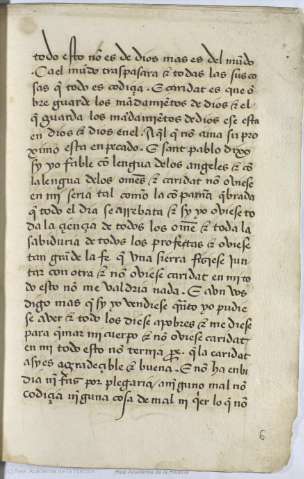 todo esto nõ es de dios mas es del mũdo
Ca el mũdo traspasara & todas las sus co
sas q̃ todo es codiçia. E caridat es que õ
bre guarde los mãdamiẽtos de dios & el
q̃ guarda los mãdamiẽtos de dios ese esta
en dios & dios en el. Aq̃l q̃ nõ ama su pro
ximo esta en pecado. E sant pablo dixo
sy yo fable cõ lengua de los angeles & cõ
la lengua de los omẽs & caridat nõ ouiese
en mi seria tal como la cõpana q̃brada
q̃ todo el dia se arrebata & sy yo ouiese to
da la çiençia de todos los omẽs & toda la
sabiduria de todos los profectas & ouiese
tan grãde la fe q̃ vna sierra fiziese jun
tar con otra & nõ ouiese caridat en mi to
do esto nõ me valdria nada. E avn vos
digo mas q̃ sy yo vendiese quãto yo pudie
se aver & todo los diese a pobres & me diese
para q̃mar mi cuerpo & nõ ouiese caridat
en mi todo esto nõ ternia q̃ la caridat
asy es agradeçible & buena. E nõ ha enbi
dia nĩ por plegaria nĩ ninguno mal nõ
codiçia nĩguna cosa de mal nĩ q̃er lo q̃ nõ
6